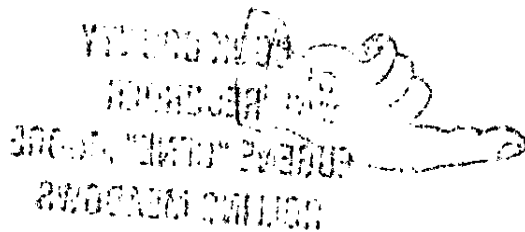 COOK COUNTY
RECORDER
EUGENE "GENE" MOORE
ROLLING MEADOWS